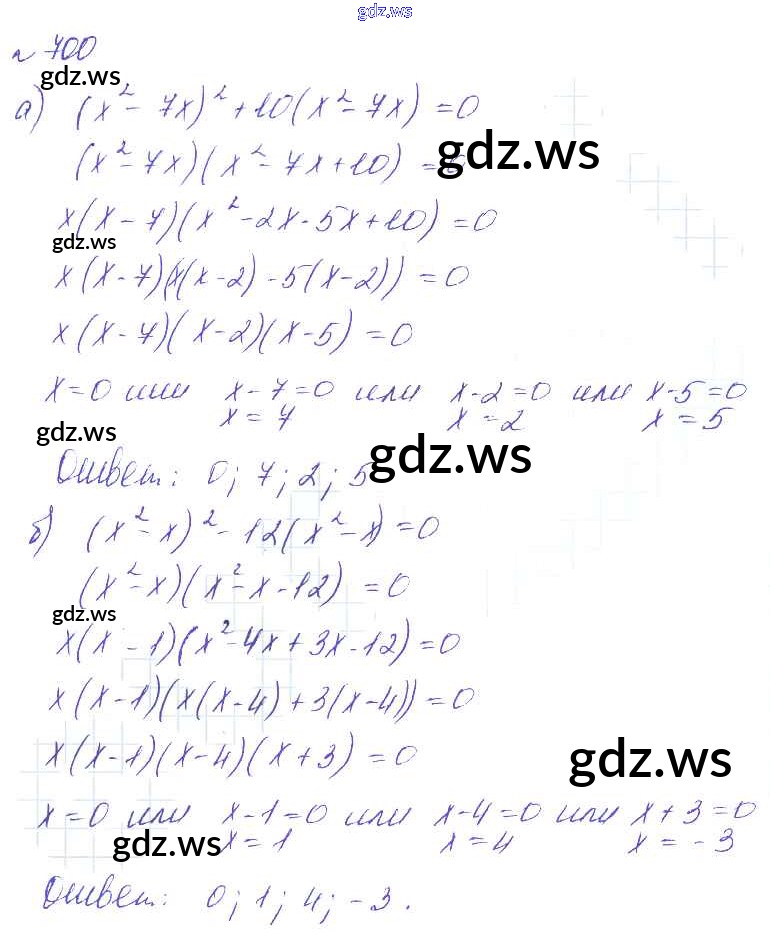 gdz.ws
№ 700
gdz.ws
а) (x² - 7x)² + 10(x² - 7x) = 0
(x² - 7x)(x² - 7x + 10) = 0
gdz.ws
x(x - 7)(x² - 2x - 5x + 10) = 0
gdz.ws
x(x - 7)(x(x - 2) - 5(x - 2)) = 0
x(x - 7)(x - 2)(x - 5) = 0
x = 0 или x - 7 = 0 или x - 2 = 0 или x - 5 = 0
gdz.ws
x = 7 x = 2 x = 5
gdz.ws
Ответ: 0; 7; 2; 5
б) (x² - x)² - 12(x² - x) = 0
(x² - x)(x² - x - 12) = 0
gdz.ws
x(x - 1)(x² - 4x + 3x - 12) = 0
x(x - 1)(x(x - 4) + 3(x - 4)) = 0
x(x - 1)(x - 4)(x + 3) = 0
gdz.ws
x = 0 или x - 1 = 0 или x - 4 = 0 или x + 3 = 0
gdz.ws
x = 1 x = 4 x = - 3
Ответ: 0; 1; 4; -3.